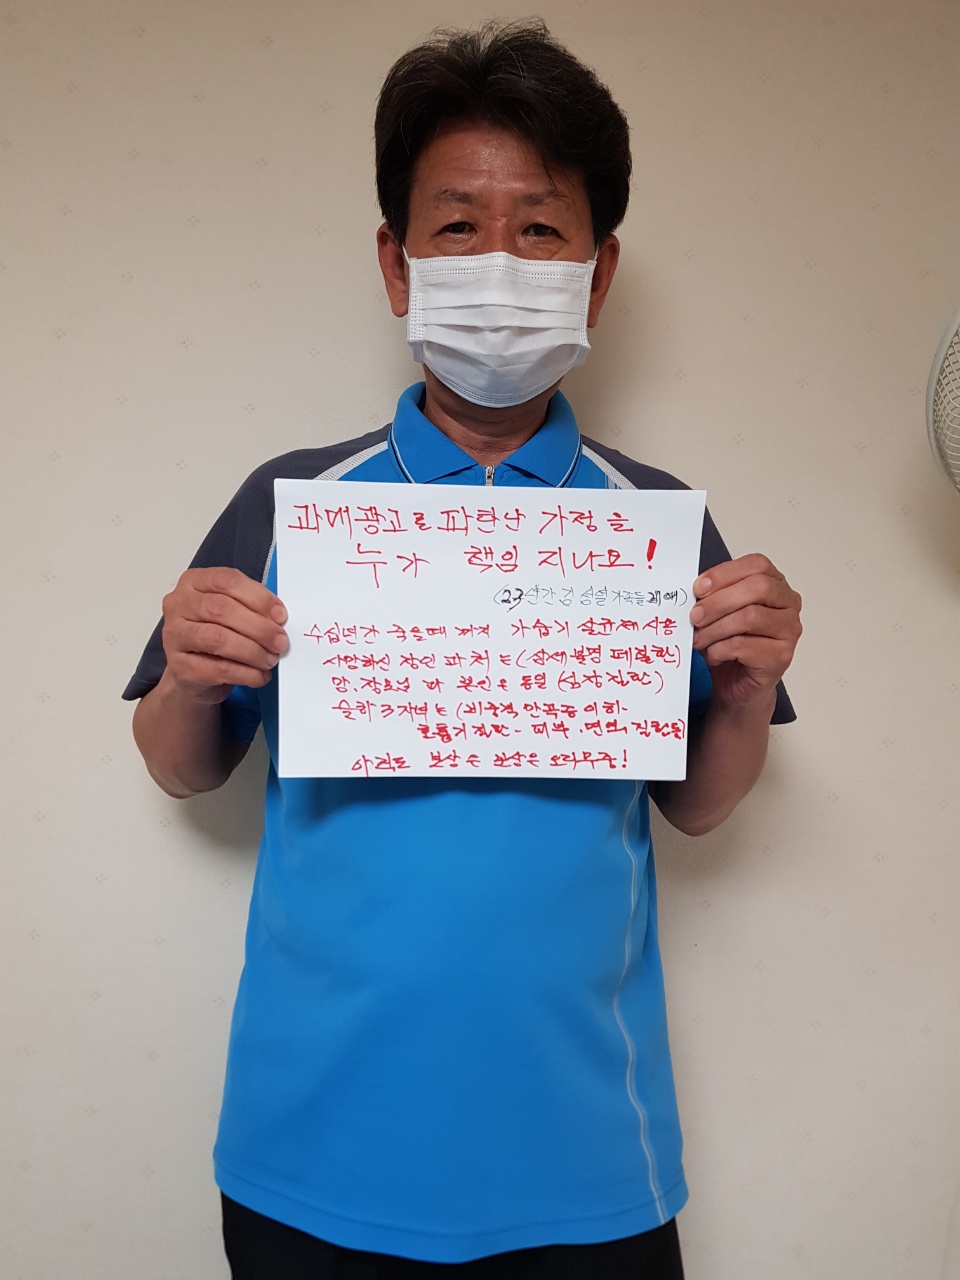 과대광고로 파탄난 가정을
누가 책임 지나요!
(23년간 김 가족들
수십년간 죽을때 까지 가습기 살균제 사용
사망하신 장인 과 처는 (상세불명 폐질환)
장모님 과 본인은 동일 (심장질환)
슬하 3자녀는 (비중격 만곡증 이하-
호흡기 질환- 피부. 면역 질환등
아직도 보상은 오리무중!